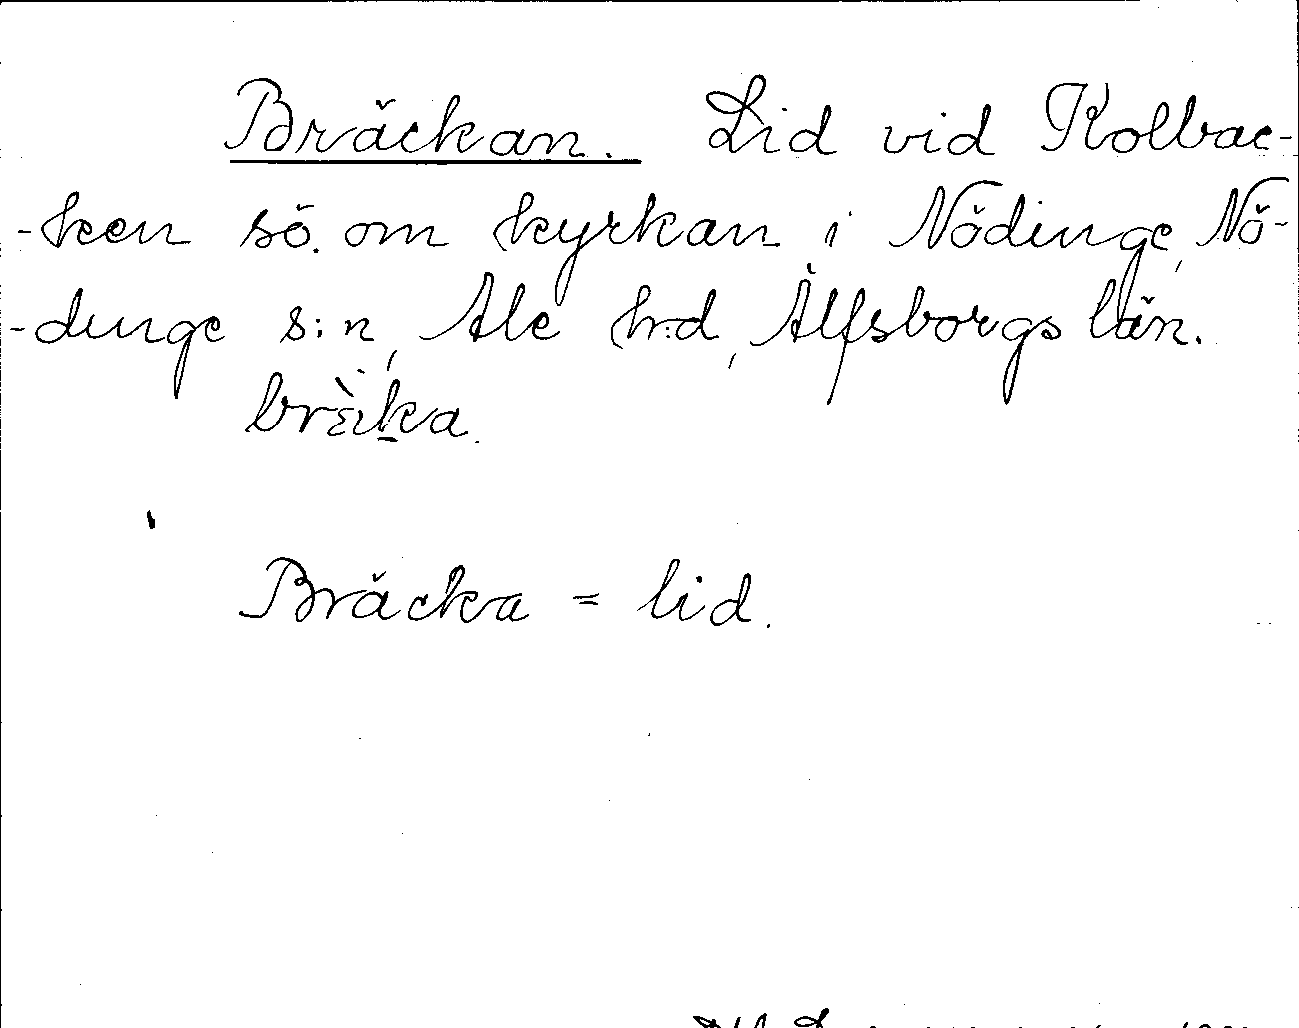 Bräckan. Lid vid Kolbac-
-ken sö. om kyrkan i Nödinge, Nö-
-dinge s:n, Ale h:d, Älfsborgs län.
Bräcka = lid.